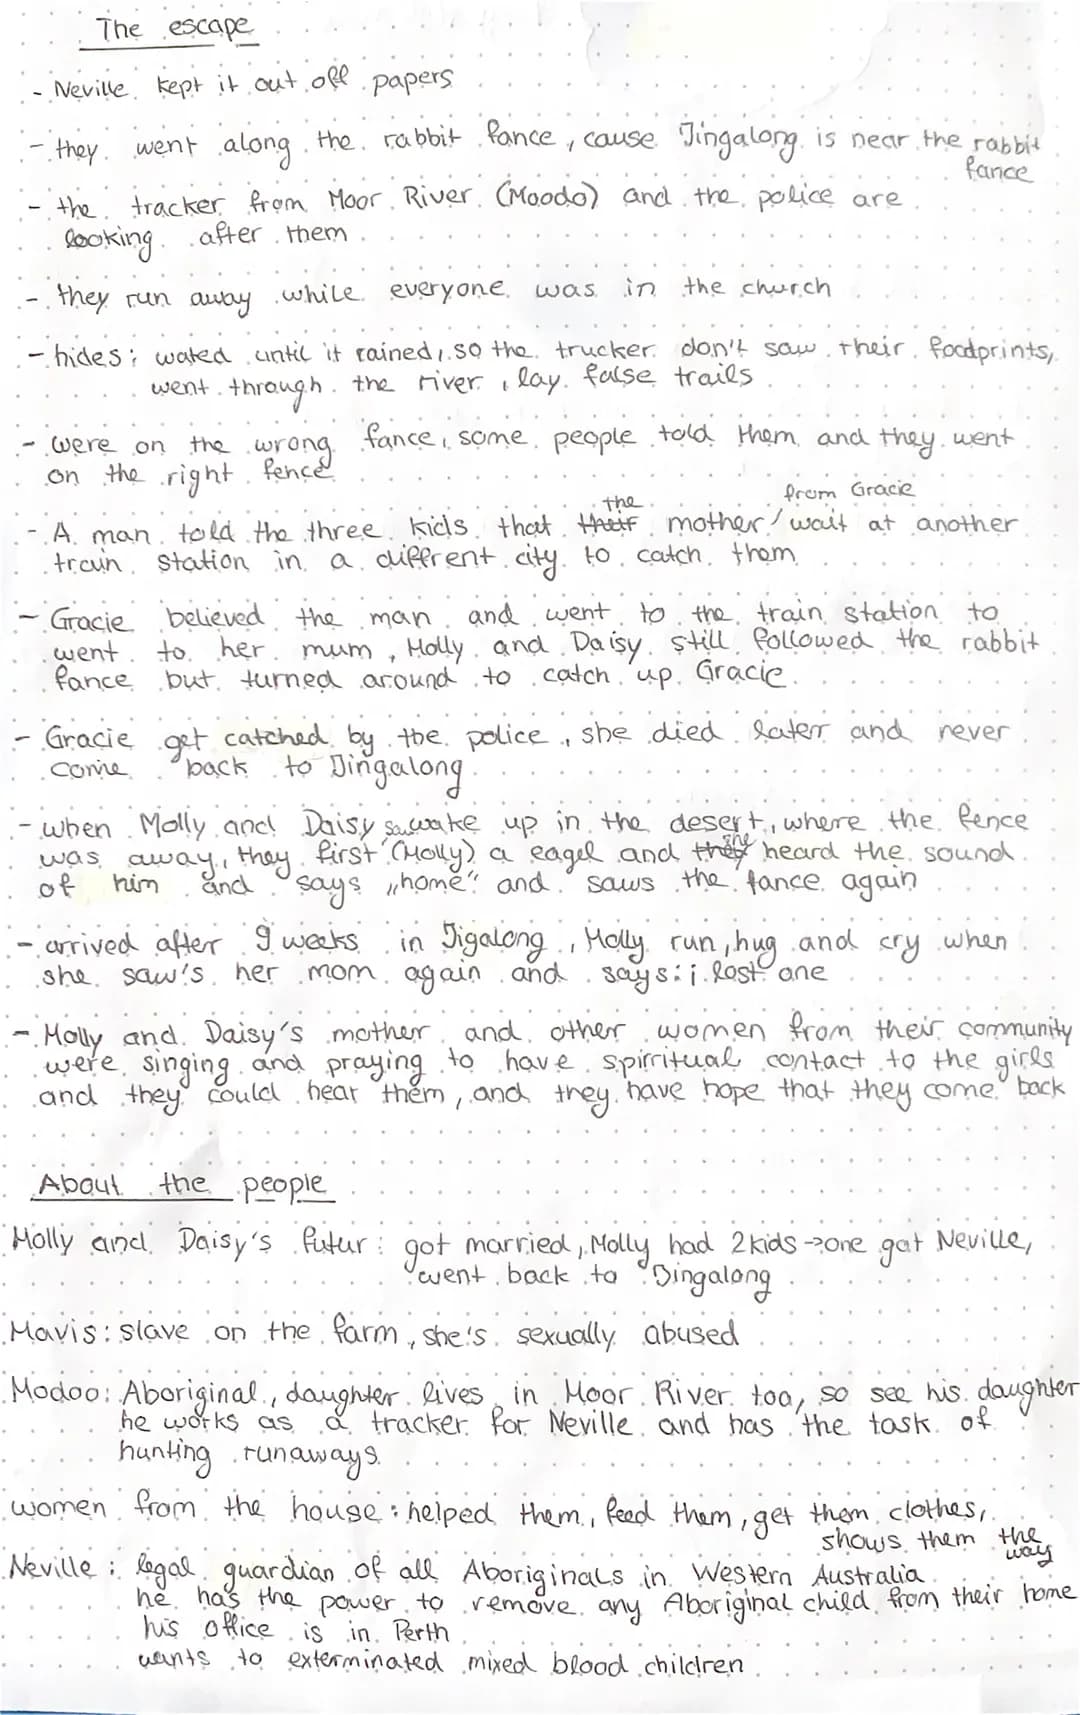 The escape
- Neville kept it out off papers
- they went along the rabbit fance, cause Jingalong is near the rabbit
fance
- the tracker from Moor River (Moodo) and the police are
looking after them
- they run away while everyone was in the church
- hides: wated until it rained, so the trucker don't saw their foodprints,
went through the river, lay false trails
- were on the wrong fance, some people told them and they went
on the right fence
from Gracie
the
- A man told the three kids that their mother / wait at another
train station in a diffrent city to catch them
- Gracie believed the man and went to the train station to
went to her mum, Molly and Daisy still followed the rabbit
fance but turned around to catch up Gracie.
- Gracie get catched by the police, she died later and never
come back to Jingalong
- when Molly and Daisy wake up in the desert, where the fence
she
was away, they first (Molly) a eagel and they heard the sound
of him and says „home" and saws the fance again
- arrived after 9 weeks in Jigalong, Molly run, hug and cry when
she saw's her mom again and says: i lost one
- Molly and Daisy's mother and other women from their community
were singing and praying to have spirritual contact to the girls
and they could hear them, and they have hope that they come back
About the people
Molly and Daisy's futur: got married, Molly had 2 kids → one gat Neville,
went back to Jingalong
Mavis: slave on the farm, she's sexually abused
Modoo: Aboriginal, daughter lives in Moor River too, so see his daughter
he works as a tracker for Neville and has the task of
hunting runaways.
women from the house: helped them, feed them, get them clothes,
shows them the
way
Neville: legal guardian of all Aboriginals in Western Australia
he has the power to remove any Aboriginal child from their home
his office is in Perth
wants to exterminated mixed blood children